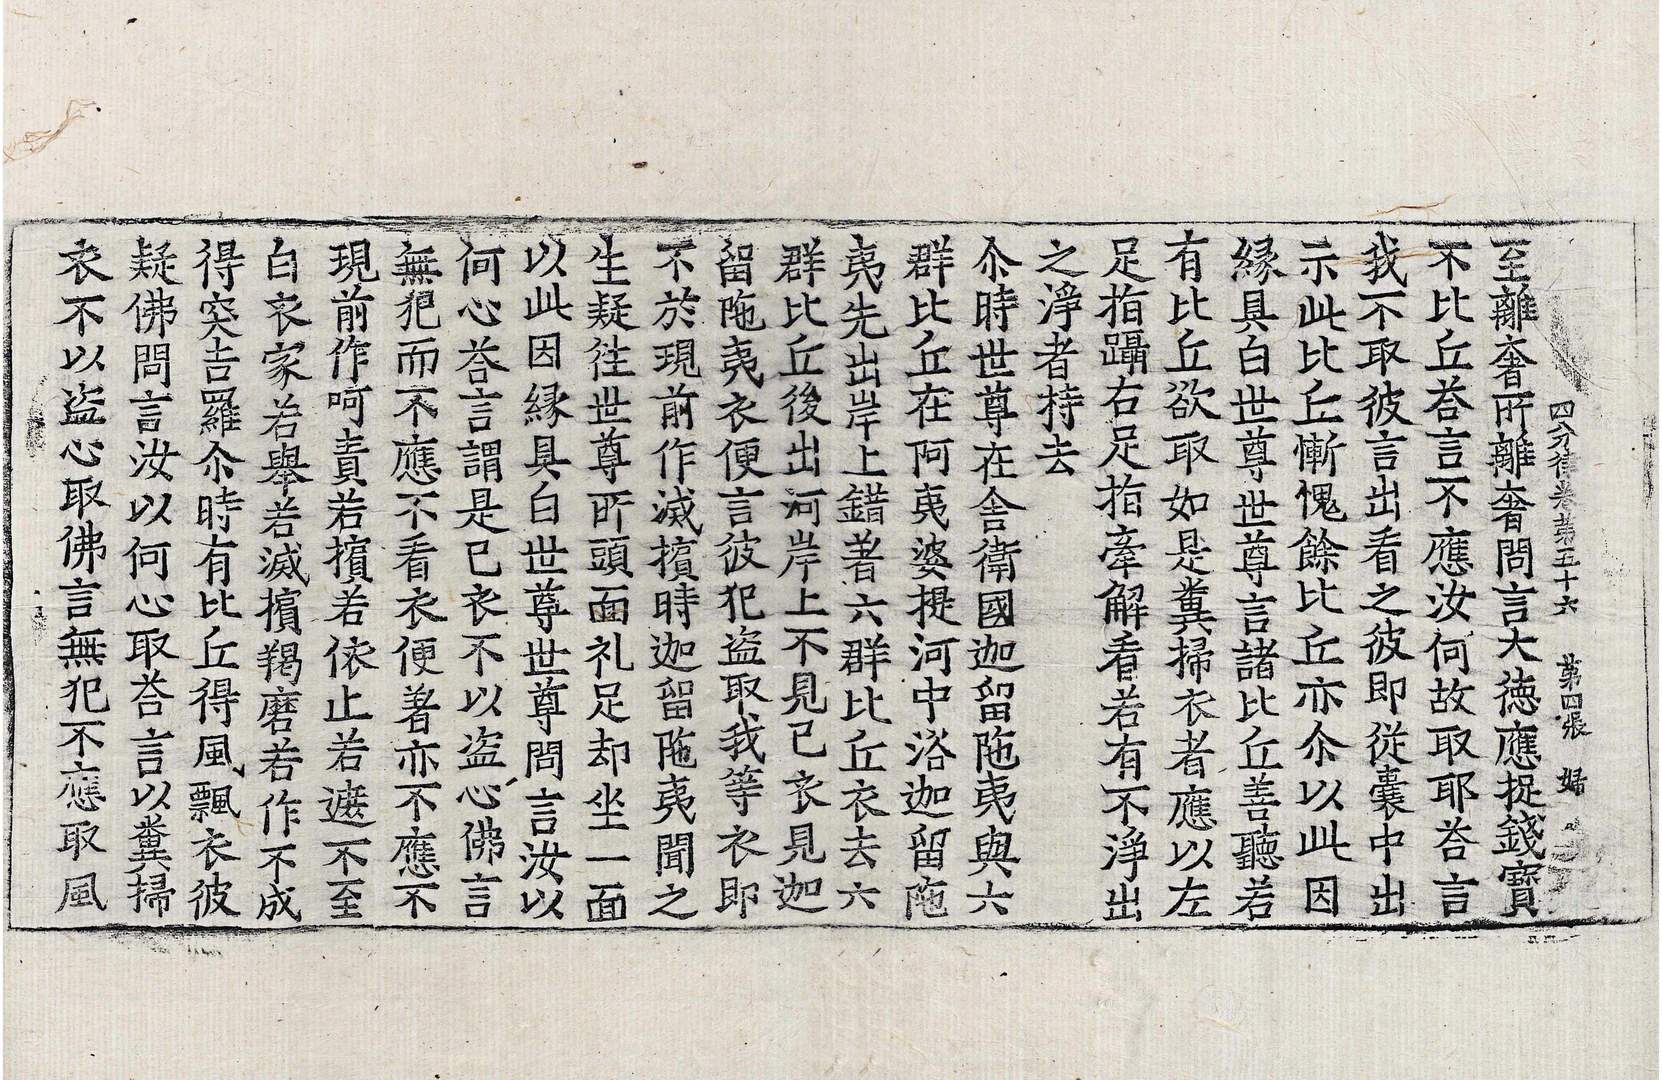 四分律卷第五十六 第四張 婦
至離奢所離奢問言大徳應捉錢寶
不比丘荅言不應汝何故取耶荅言
我不取彼言出看之彼即從囊中出
示此比丘慚愧餘比丘亦尒以此因
縁具白世尊世尊言諸比丘善聽若
有比丘欲取如是糞掃衣者應以左
足指躡右足指牽解看若有不淨出
之淨者持去
尒時世尊在舍衛國迦留陁夷與六
群比丘在阿夷婆提河中浴迦留陁
夷先出岸上錯著六群比丘衣去六
群比丘後出河岸上不見已衣見迦
留陁夷衣便言彼犯盜取我等衣即
不於現前作滅擯時迦留陁夷聞之
生疑徃世尊所頭面礼足却坐一面
以此因縁具白世尊世尊問言汝以
何心荅言謂是已衣不以盜心佛言
無犯而不應不看衣便著亦不應不
現前作呵責若擯若依止若遮不至
白衣家若舉若滅擯羯磨若作不成
得突吉羅尒時有比丘得風飄衣彼
疑佛問言汝以何心取荅言以糞掃
衣不以盜心取佛言無犯不應取風